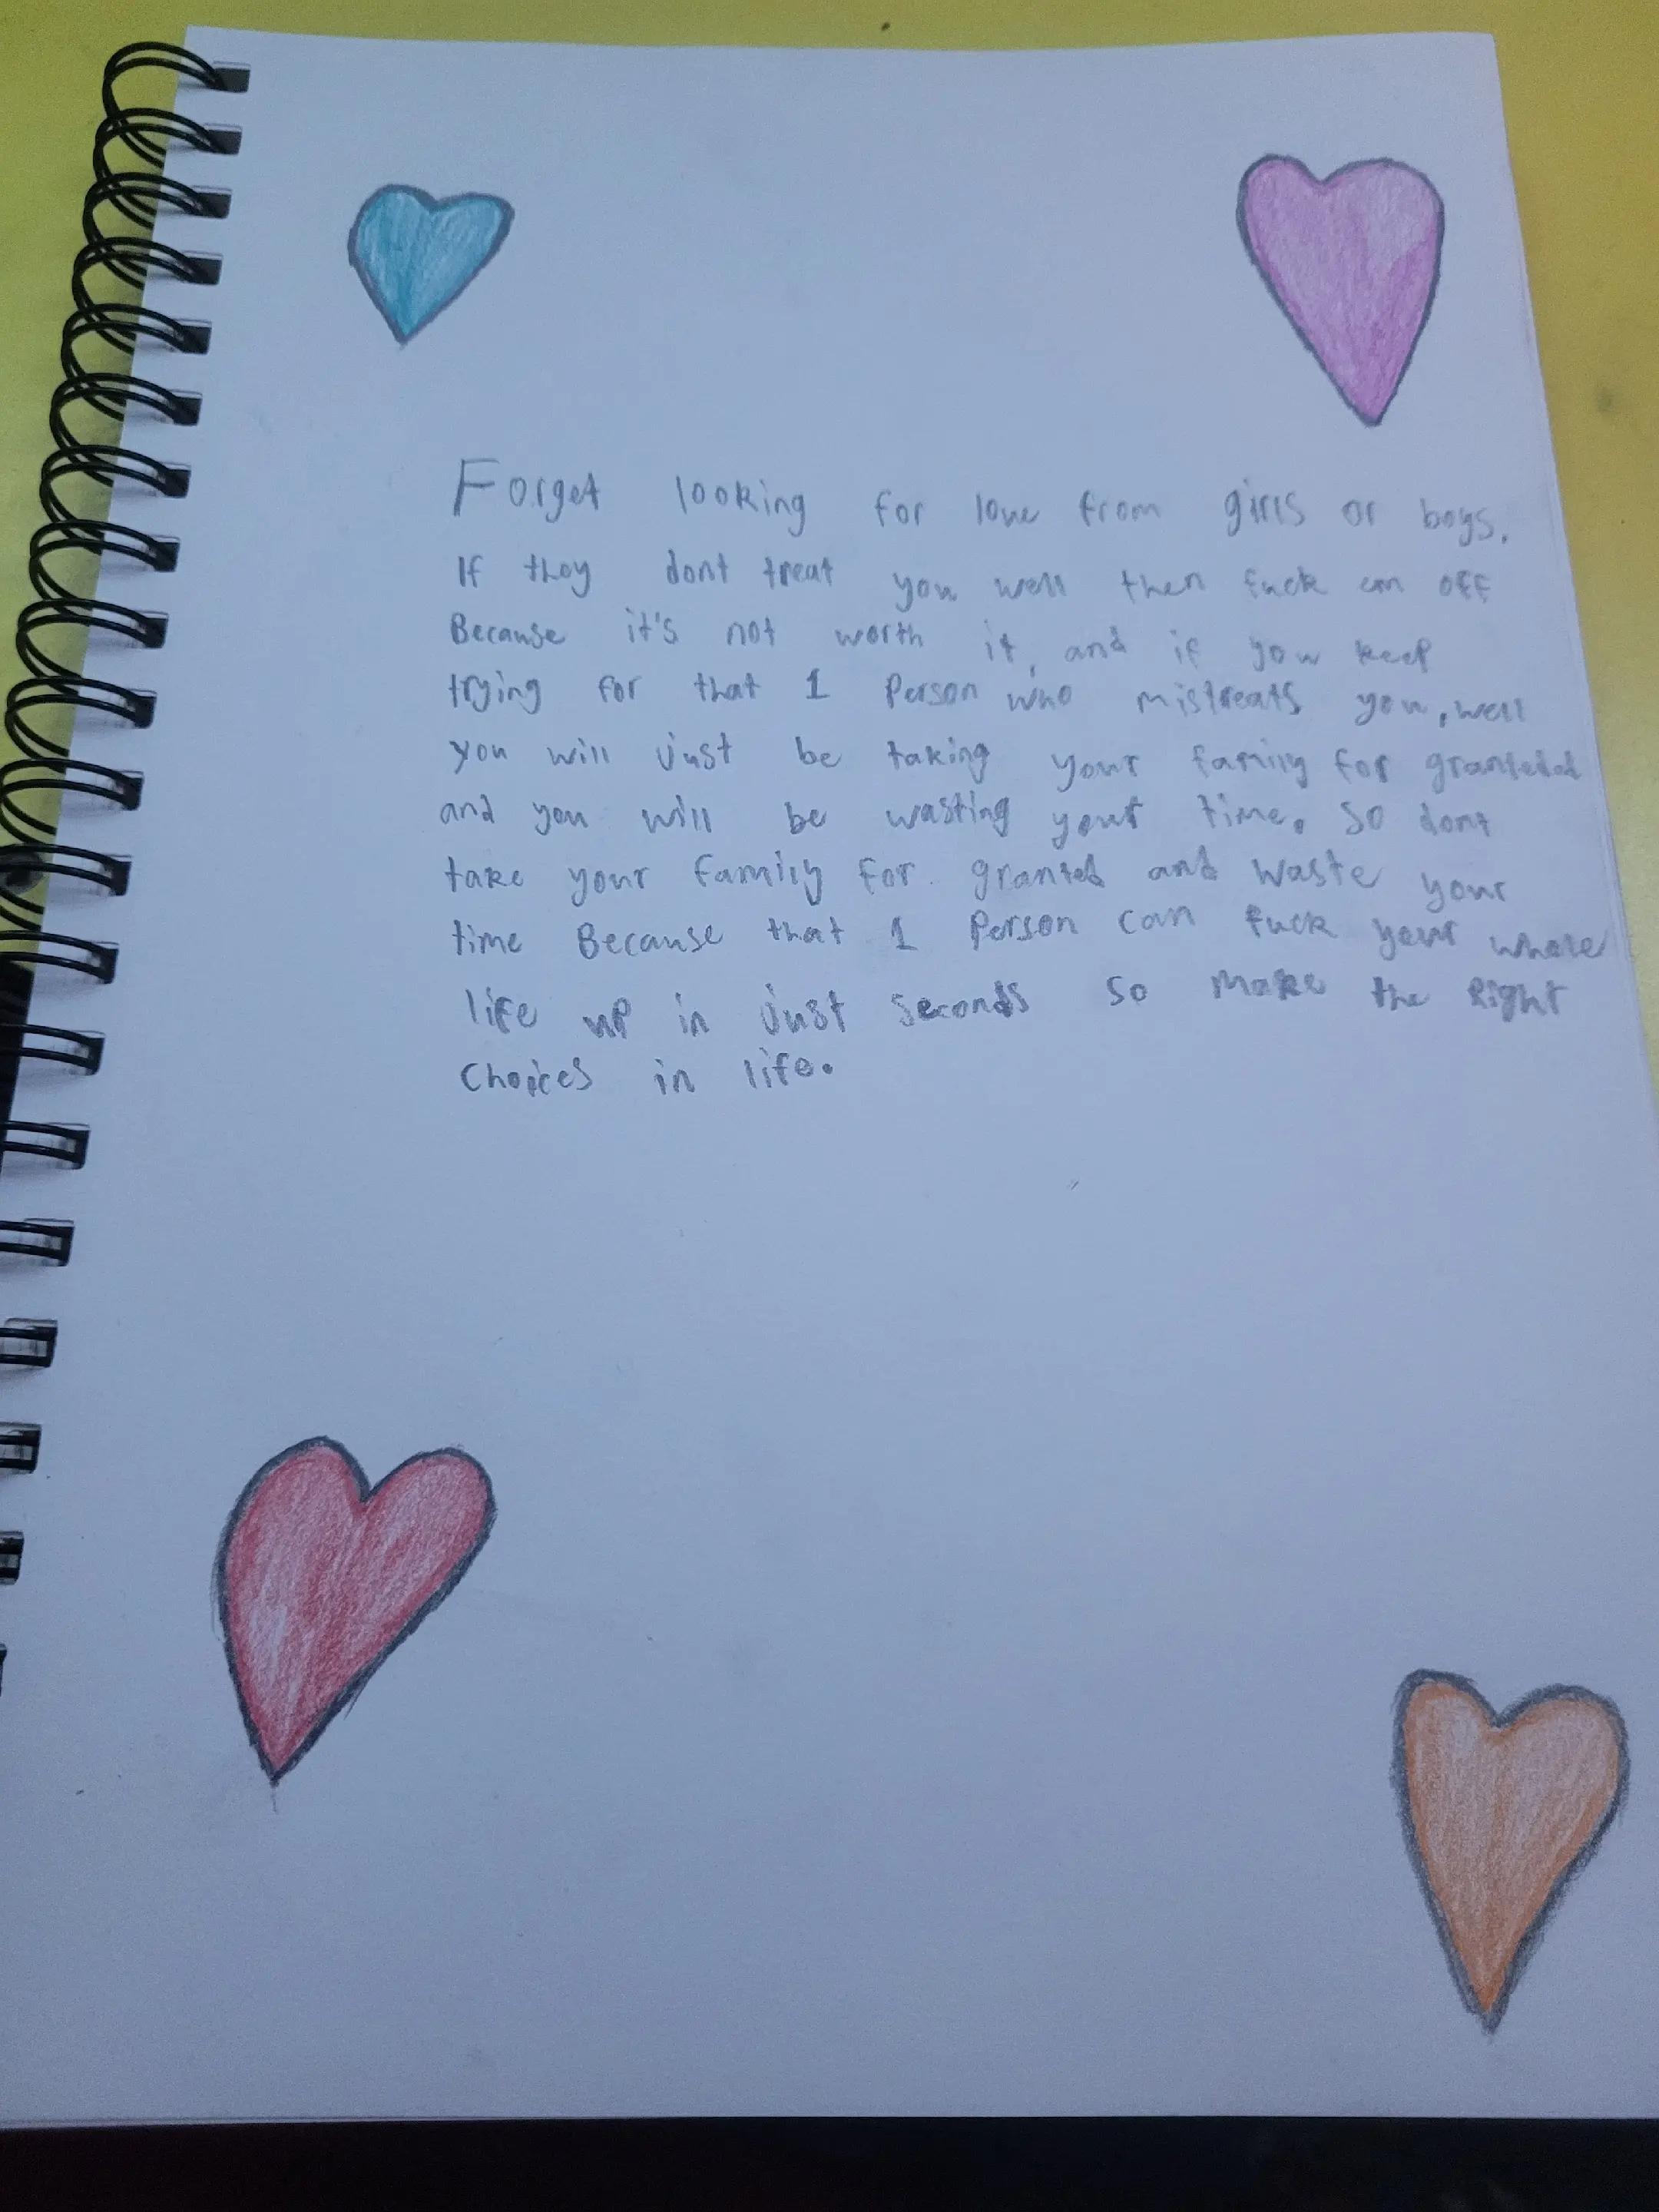 Forget looking for love from girls or boys.
If they dont treat you well then fuck em off
Because it's not worth it, and if you keep
trying for that 1 Person who mistreats you, well
you will just be taking your family for granted
and you will be wasting your time. So dont
take your family for granted and waste your
time Because that 1 Person can fuck your whole
life up in just seconds so make the Right
Choices in life.